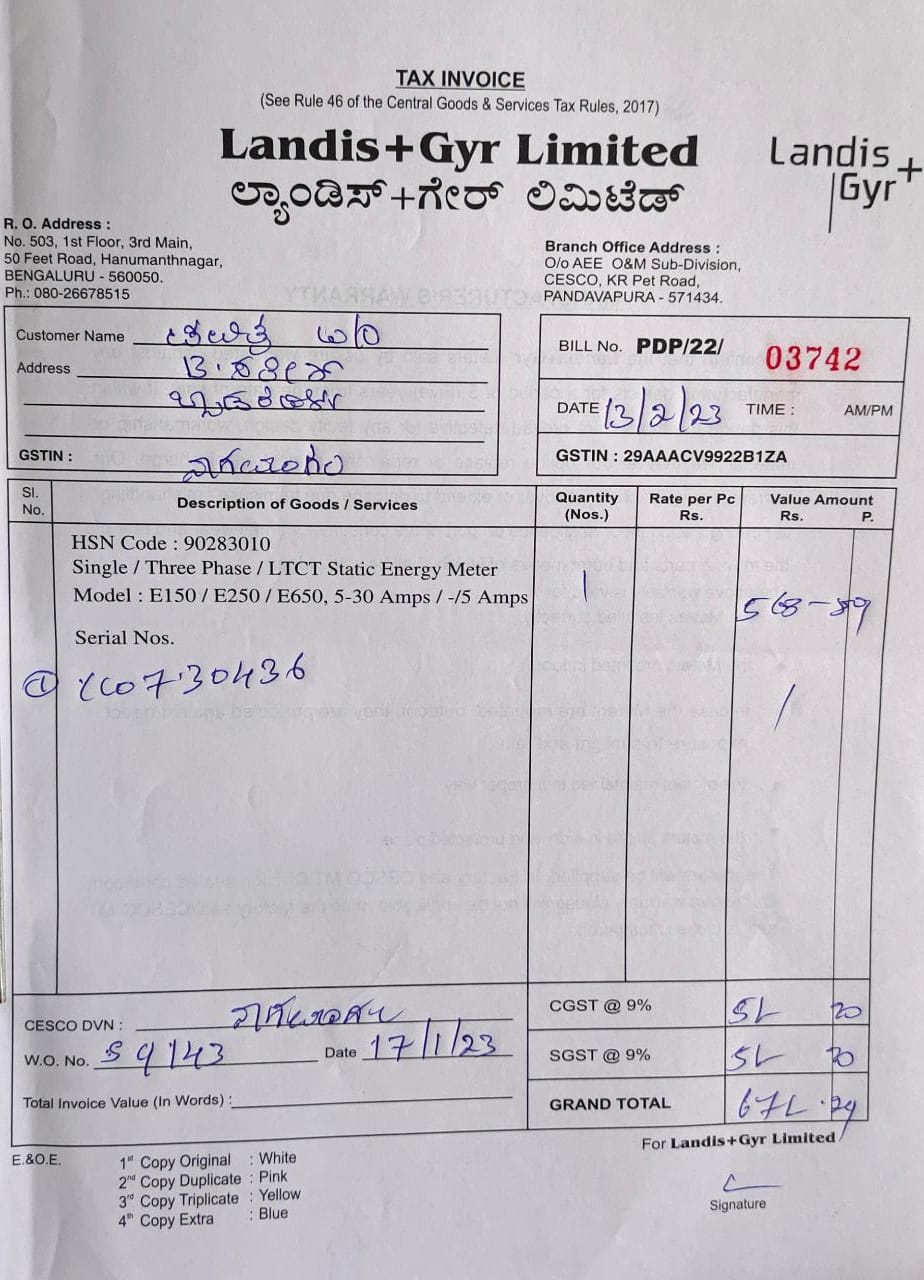 TAX INVOICE
(See Rule 46 of the Central Goods & Services Tax Rules, 2017)
Landis+Gyr Limited
ಲ್ಯಾಂಡಿಸ್+ಗೇರ್ ಲಿಮಿಟೆಡ್
Landis
Gyr+
R. O. Address :
No. 503, 1st Floor, 3rd Main,
50 Feet Road, Hanumanthnagar,
BENGALURU - 560050.
Ph.: 080-26678515
Branch Office Address :
O/o AEE O&M Sub-Division,
CESCO, KR Pet Road,
PANDAVAPURA - 571434.
Customer Name
Address
GSTIN :
BILL No. PDP/22/ 03742
DATE 13/2/23 TIME : AM/PM
GSTIN : 29AAACV9922B1ZA
Sl. No. Description of Goods / Services Quantity (Nos.) Rate per Pc Rs. Value Amount Rs. P.
HSN Code : 90283010
Single / Three Phase / LTCT Static Energy Meter
Model : E150 / E250 / E650, 5-30 Amps / -/5 Amps 1 568-89
Serial Nos.
① 730436
CESCO DVN :
W.O. No. 59/43 Date 17/1/23
Total Invoice Value (In Words) :
CGST @ 9% 51 20
SGST @ 9% 51 20
GRAND TOTAL 671.29
For Landis+Gyr Limited
Signature
E.&O.E.
1st Copy Original : White
2nd Copy Duplicate : Pink
3rd Copy Triplicate : Yellow
4th Copy Extra : Blue